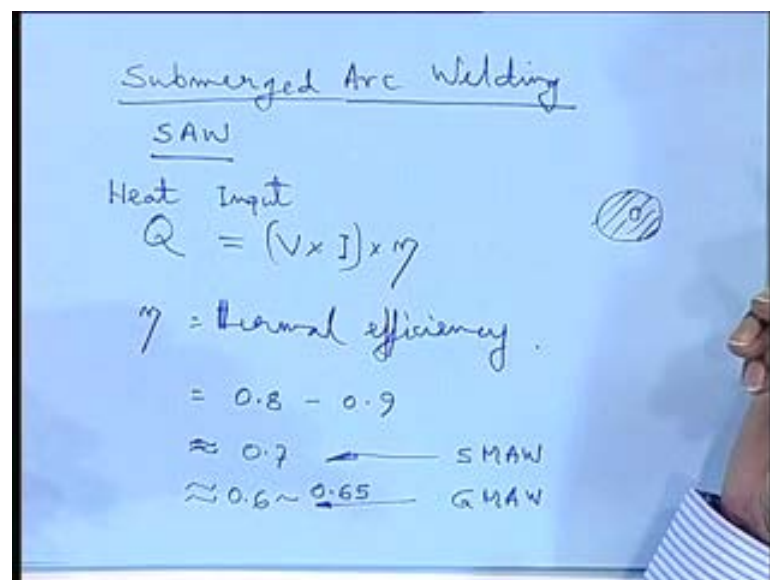 Submerged Arc Welding
SAW
Heat Input
Q = (V x I) x η
η = thermal efficiency.
= 0.8 - 0.9
≈ 0.7 ← SMAW
≈ 0.6 ~ 0.65 ← GMAW